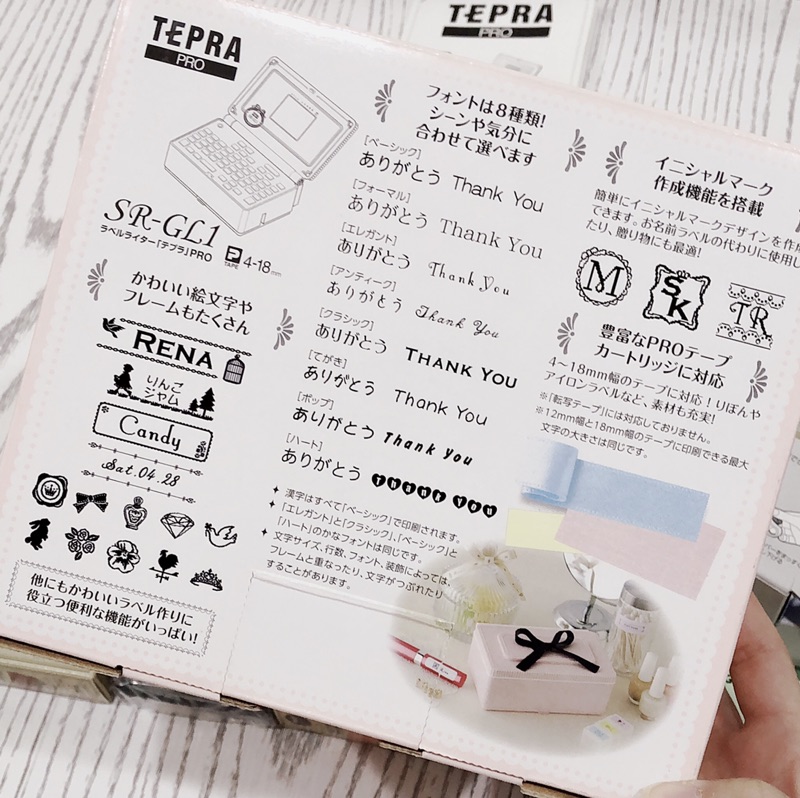 TEPRA
PRO
TEPRA
PRO
SR-GL1
ラベルライター「テプラ」PRO
TAPE 4-18mm
かわいい絵文字や
フレームもたくさん
RENA
りんご
ジャム
Candy
Sat.04.28
他にもかわいいラベル作りに
役立つ便利な機能がいっぱい!
フォントは8種類!
シーンや気分に
合わせて選べます
[ベーシック]
ありがとう Thank You
[フォーマル]
ありがとう Thank You
[エレガント]
ありがとう Thank You
[アンティーク]
ありがとう Thank You
[クラシック]
ありがとう THANK YOU
[てがき]
ありがとう Thank You
[ポップ]
ありがとう Thank You
[ハート]
ありがとう THANK YOU
漢字はすべて「ベーシック」で印刷されます。
「エレガント」と「クラシック」、「ベーシック」と
「ハート」のかなフォントは同じです。
文字サイズ、行数、フォント、装飾によっては、
フレームと重なったり、文字がつぶれたり
することがあります。
イニシャルマーク
作成機能を搭載
簡単にイニシャルマークデザインを作
できます。お名前ラベルの代わりに使用し
たり、贈り物にも最適!
M
SK
TR
豊富なPROテープ
カートリッジに対応
4〜18mm幅のテープに対応!りぼんや
アイロンラベルなど、素材も充実!
※「転写テープ」には対応しておりません。
※12mm幅と18mm幅のテープに印刷できる最大
文字の大きさは同じです。